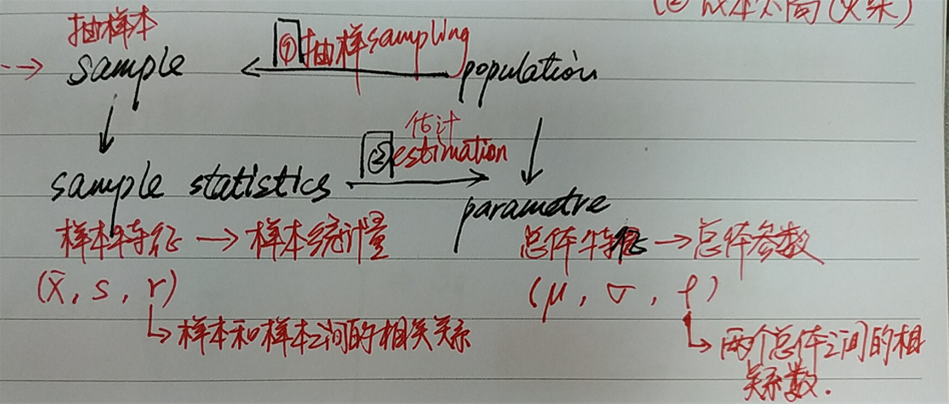 (2) 成本太高(火柴)
抽样本 ①抽样sampling
--> sample ← population
估计
②estimation
sample statistics → parametre
样本特征 → 样本统计量 总体特征 → 总体参数
(x̄, s, r) (μ, σ, ρ)
↳ 样本和样本之间的相关关系 ↳ 两个总体之间的相
关系数.